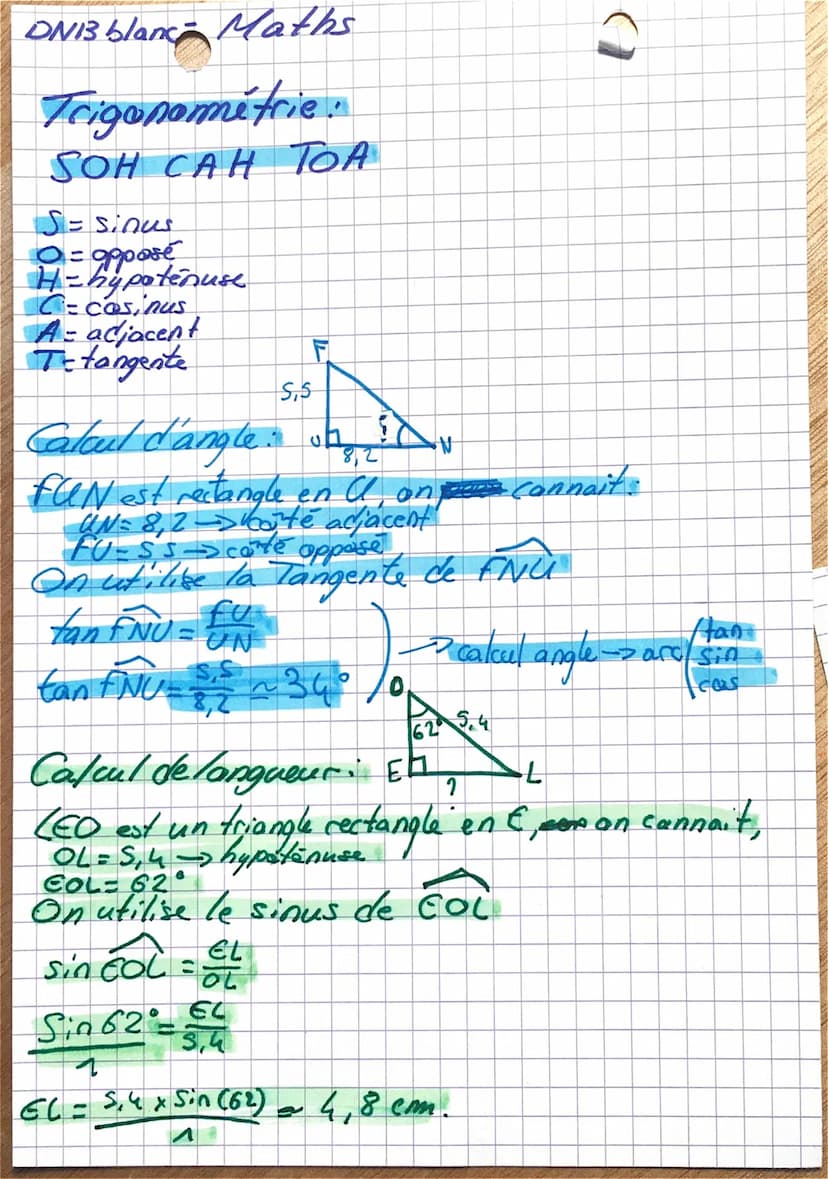 DNB blanc - Maths
Trigonométrie :
SOH CAH TOA
S = sinus
O = opposé
H = hypoténuse
C = cosinus
A = adjacent
T = tangente
F
5,5
?
U
N
8,2
Calcul d'angle :
FUN est rectangle en U, on connait :
UN = 8,2 → côté adjacent
FU = 5,5 → côté opposé
On utilise la Tangente de FNU
tan FNU = FU/UN
tan FNU = 5,5/8,2 ≈ 34°
→ calcul angle → arc ( tan
sin
cos
O
62°
5,4
E
L
?
Calcul de longueur :
LEO est un triangle rectangle en E, on connait,
OL = 5,4 → hypoténuse
EOL = 62°
On utilise le sinus de EOL
sin EOL = EL/OL
Sin 62°/1 = EL/5,4
EL = 5,4 x sin(62)/1 ≈ 4,8 cm.